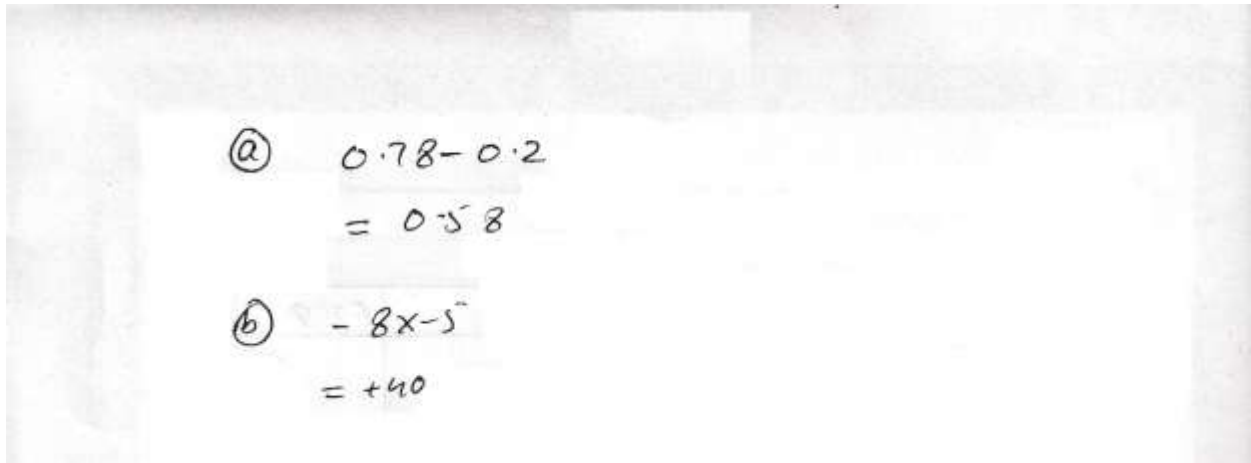 ⓐ 0.78-0.2
= 0.58
ⓑ - 8x-5
= +40